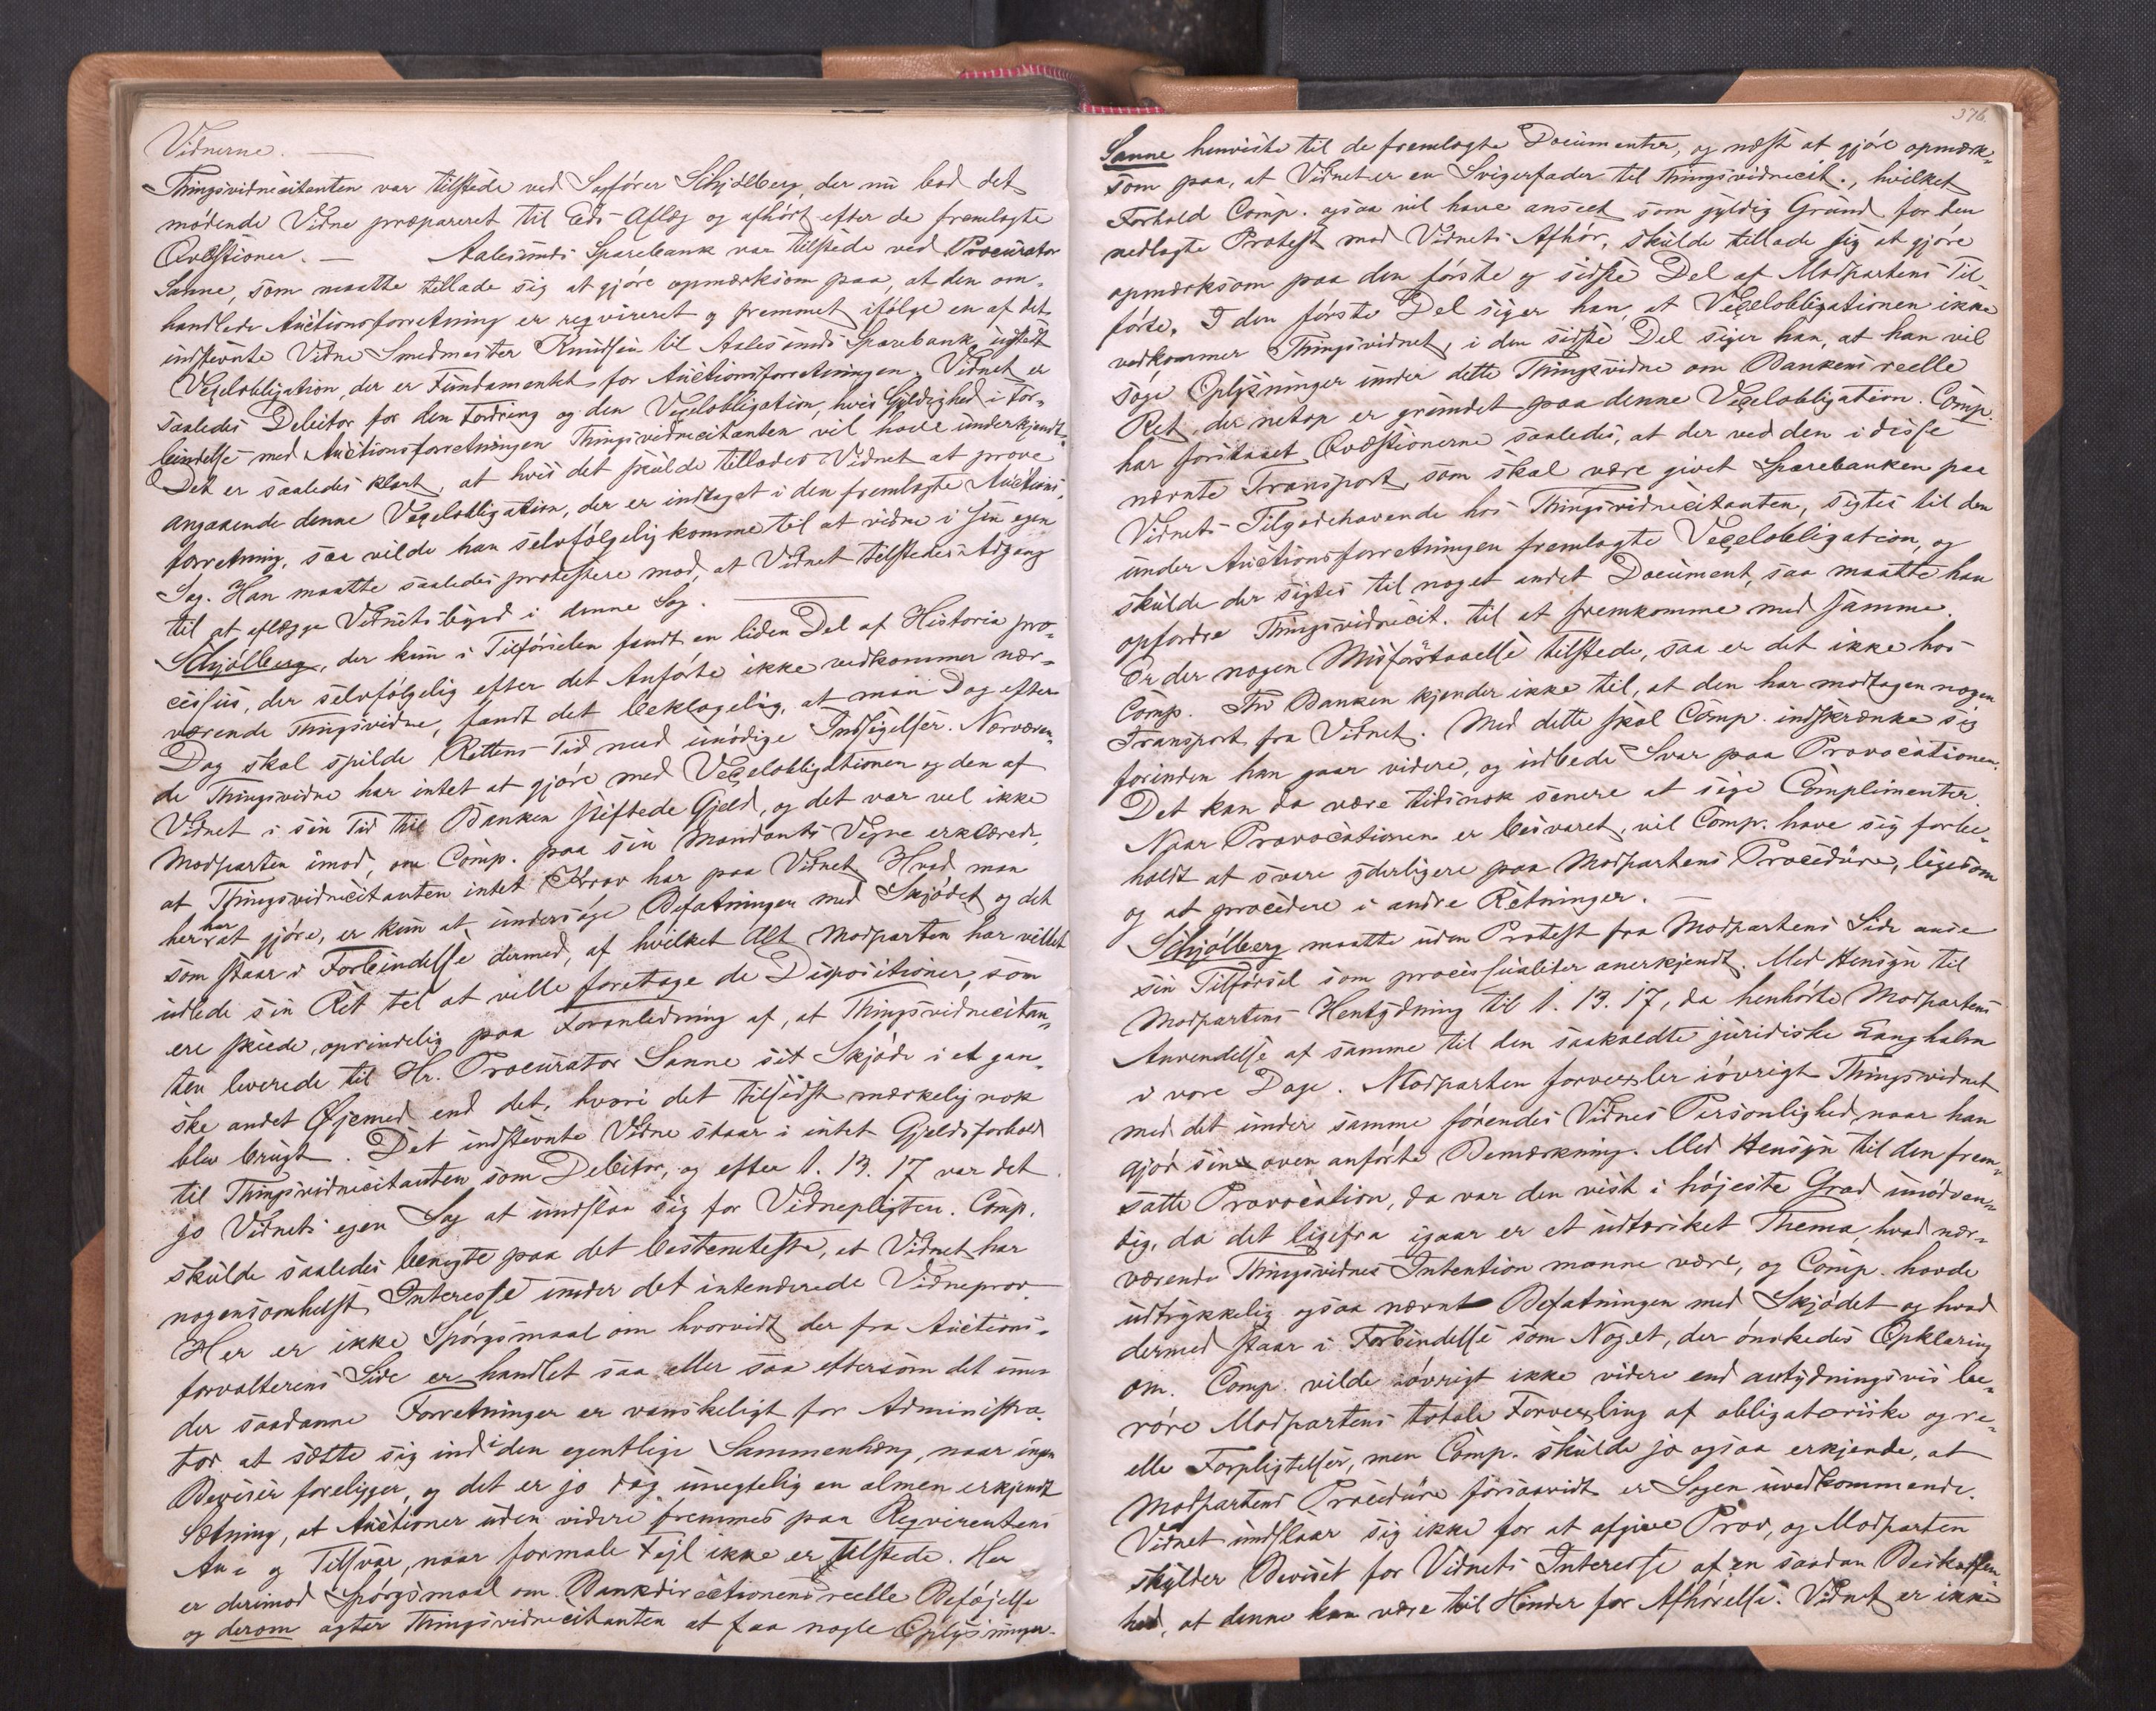 Vidnerne. —
Thingsvidnecitanten var tilstede ved Sagfører Schjølberg, der nu bad det
mødende Vidne præpareret til Eds-Aflæg og afhørt efter de fremlagte
Qvæstioner. — Aalesunds Sparebank var tilstede ved Procurator
Sanne, som maatte tillade sig at gjøre opmærksom paa, at den om-
handlede Auctionsforretning er reqvireret og fremmet ifølge en af det
indstevnte Vidne Smedmester Knudsen til Aalesunds Sparebank udstedt
Vexelobligation, der er Fundamentet for Auctionsforretningen. Vidnet er
saaledes Debitor for den Fordring og den Vexelobligation, hvis Gyldighed i For-
bindelse med Auctionsforretningen Thingsvidnecitanten vil have underkjendt.
Det er saaledes klart, at hvis det skulde tillades Vidnet at prove
angaaende denne Vexelobligation, der er indtaget i den fremlagte Auctions-
forretning, saa vilde han selvfølgelig komme til at vidne i sin egen
Sag. Han maatte saaledes protestere mod, at Vidnet tilstedes Adgang
til at aflægge Vidnesbyrd i denne Sag. —
Schjølberg, der kun i Tilførselen fandt en liden Del af Historia pro-
cessus, der selvfølgelig efter det Anførte ikke vedkommer nær-
værende Thingsvidne, fandt det beklageligt, at man Dag efter
Dag skal spilde Rettens Tid med unødige Indsigelser. Nærværen-
de Thingsvidne har intet at gjøre med Vexelobligationen og den af
Vidnet i sin Tid til Banken stiftede Gjeld, og det var vel ikke
Modparten imod, om Comp. paa sin Mandants Vegne erklærede,
at Thingsvidnecitanten intet Krav har paa Vidnet. Hvad man
her har at gjøre, er kun at undersøge Befatningen med Skjødet og det
som staar i Forbindelse dermed, af hvilket Alt Modparten har villet
udlede sin Ret til at ville foretage de Dispositioner, som
ere skeede, oprindelig paa Foranledning af, at Thingsvidnecitan-
ten leverede til Hr. Procurator Sanne sit Skjøde i et gan-
ske andet Øjemed end det, hvori det tilsidst mærkelig nok
blev brugt. Det indstevnte Vidne staar i intet Gjeldsforhold
til Thingsvidnecitanten som Debitor, og efter 1. 13. 17 var det
jo Vidnets egen Sag at undslaa sig for Vidnepligten. Comp.
skulde saaledes benegte paa det bestemteste, at Vidnet har
nogensomhelst Interesse under det intenderede Vidneprov.
Her er ikke Spørgsmaal om hvorvidt der fra Auctions-
forvalterens Side er handlet saa eller saa eftersom det un-
der saadanne Forretninger er vanskeligt for Administra-
tor at sætte sig ind i den egentlige Sammenhæng, naar ingen
Beviser foreligger, og det er jo dog unegtelig en almen erkjendt
Sætning, at Auctioner uden videre fremmes paa Reqvirentens
An- og Tilsvar, naar formale Fejl ikke er tilstede. Her
er derimod Spørgsmaal om Bankdirectionens reelle Beføjelse
og derom agter Thingsvidnecitanten at faa nogle Oplysninger.
376.
Sanne henviste til de fremlagte Documenter, og næst at gjøre opmærk-
som paa, at Vidnet er en Svigerfader til Thingsvidnecit., hvilket
Forhold Comp. ogsaa vil have anseet som gyldig Grund for den
nedlagte Protest mod Vidnets Afhør, skulde tillade sig at gjøre
opmærksom paa den første og sidste Del af Modpartens Til-
førte. I den første Del siger han, at Vexelobligationen ikke
vedkommer Thingsvidnet, i den sidste Del siger han, at han vil
søge Oplysninger under dette Thingsvidne om Bankens reelle
Ret, der netop er grundet paa denne Vexelobligation. Comp.
har forstaaet Qvæstionerne saaledes, at der ved den i disse
nævnte Transport, som skal være givet Sparebanken paa
Vidnets Tilgodehavende hos Thingsvidnecitanten, sigtes til den
under Auctionsforretningen fremlagte Vexelobligation, og
skulde der sigtes til noget andet Document, saa maatte han
opfordre Thingsvidnecit. til at fremkomme med samme.
Er der nogen Misforstaaelse tilstede, saa er det ikke hos
Comp. Thi Banken kjender ikke til, at den har modtagen nogen
Transport fra Vidnet. Med dette skal Comp. indskrænke sig
forinden han gaar videre, og udbede Svar paa Provocationen.
Det kan da være tidsnok senere at sige Complimenter.
Naar Provocationen er besvaret, vil Comp. have sig forbe-
holdt at svare yderligere paa Modpartens Procedure, ligesom
og at procedere i andre Retninger. —
Schjølberg maatte uden Protest fra Modpartens Side anse
sin Tilførsel som processualiter anerkjendt. Med Hensyn til
Modpartens Hentydning til 1. 13. 17, da henhørte Modpartens
Anvendelse af samme til den saakaldte juridiske Langhalm
i vore Dage. Modparten forvexler iøvrigt Thingsvidnet
med det under samme førendes Vidnes Personlighed, naar han
gjør sin oven anførte Bemærkning. Med Hensyn til den frem-
satte Provocation, da var den vist i højeste Grad unødven-
dig, da det ligefra igaar er et udtærsket Thema, hvad nær-
værende Thingsvidnes Intention monne være, og Comp. havde
udtrykkelig ogsaa nævnt Befatningen med Skjødet og hvad
dermed staar i Forbindelse som Noget, der ønskedes Opklaring
om. Comp. vilde iøvrigt ikke videre end antydningsvis be-
røre Modpartens totale Forvexling af obligatoriske og re-
elle Forpligtelser, men Comp. skulde jo ogsaa erkjende, at
Modpartens Procedure forsaavidt er Sagen uvedkommende.
Vidnet undslaar sig ikke for at afgive Prov, og Modparten
skylder Beviset for Vidnets Interesse af en saadan Beskaffen-
hed, at denne kan være til Hinder for Afhørelse. Vidnet er ikke